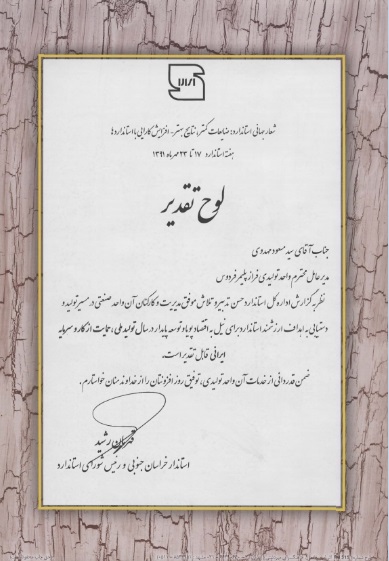 شعار جهانی استاندارد: ضایعات کمتر، نتایج بهتر - افزایش کارایی با استانداردها
هفته استاندارد ۱۷ تا ۲۳ مهرماه ۱۳۹۱
لوح تقدیر
جناب آقای سید مسعود مهدوی
مدیرعامل محترم واحد تولیدی فراز پلیمر فردوس
نظر به گزارش اداره کل استاندارد حسن تدبیر و تلاش موفق مدیریت و کارکنان آن واحد صنعتی در مسیر تولید و
دستیابی به اهداف ارزشمند استاندارد برای نیل به اقتصاد پویا و توسعه پایدار در سال تولید ملی، حمایت از کار و سرمایه
ایرانی قابل تقدیر است.
ضمن قدردانی از خدمات آن واحد تولیدی، توفیق روز افزونتان را از خداوند منان خواستارم.
رشید
استاندار خراسان جنوبی و رئیس شورای استاندارد